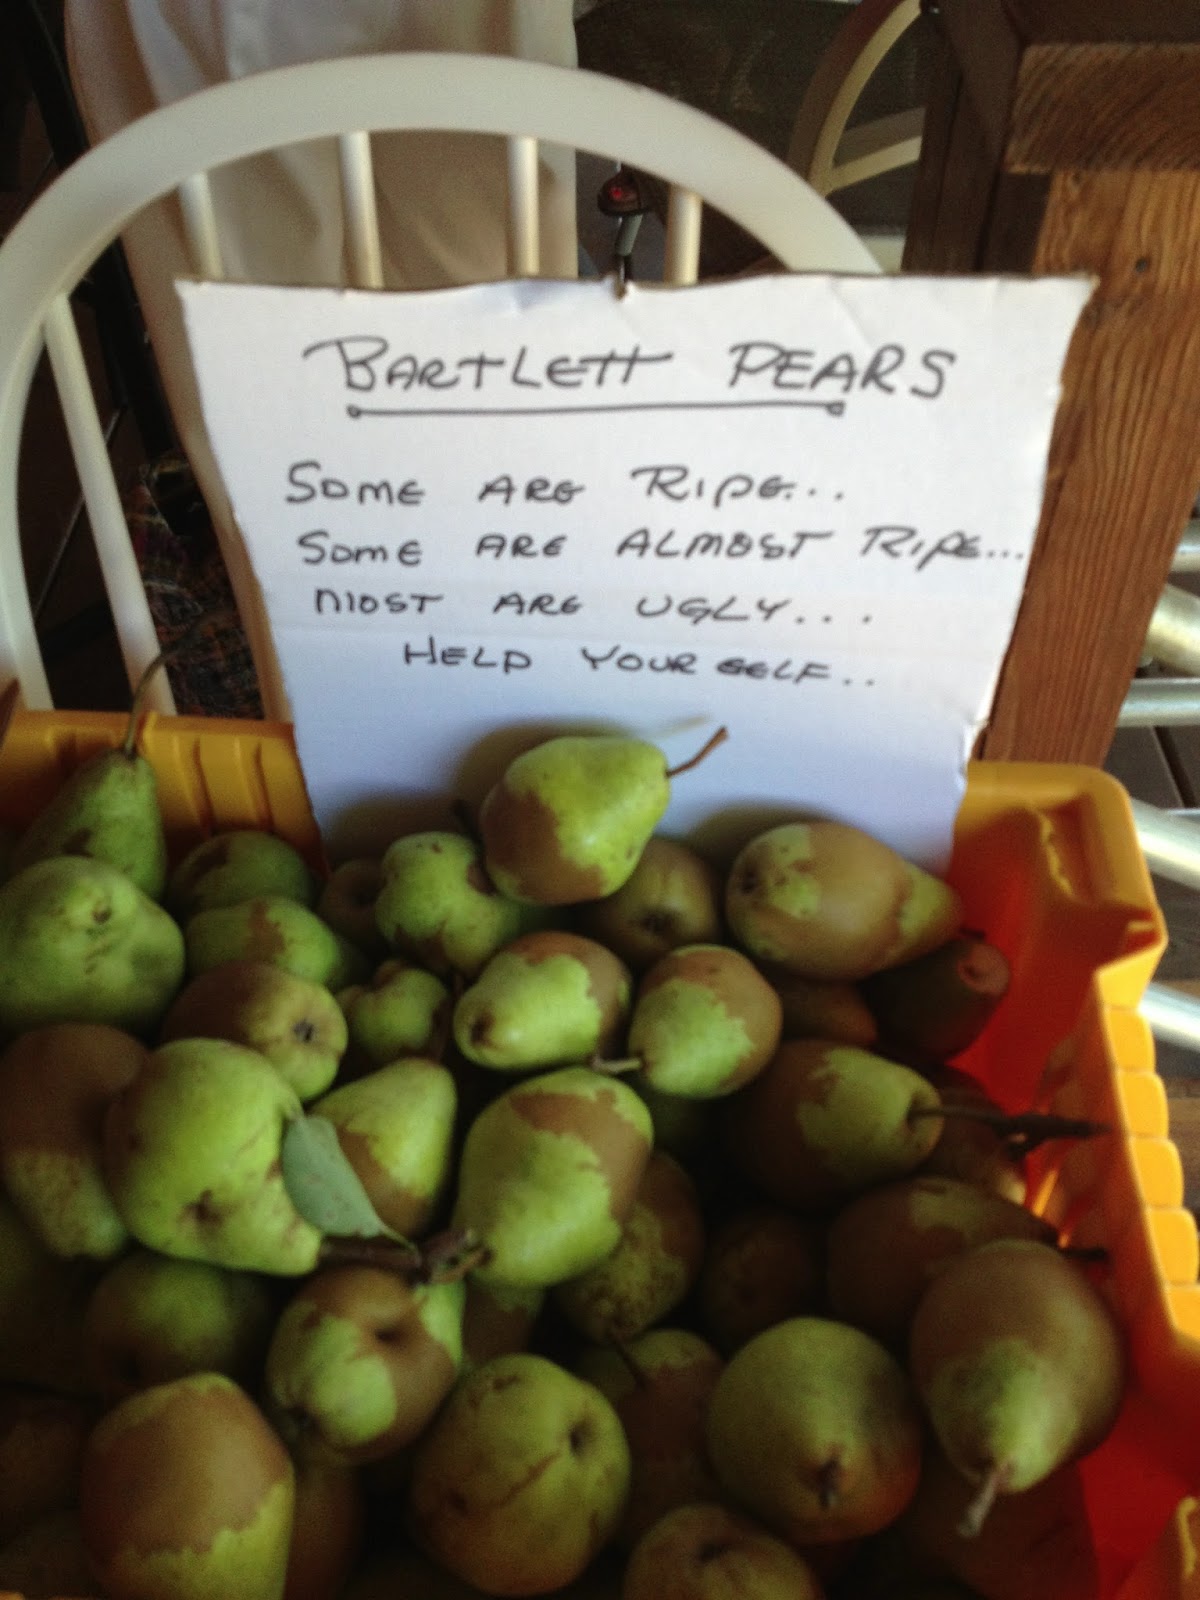 BARTLETT PEARS
SOME ARE RIPE...
SOME ARE ALMOST RIPE...
MOST ARE UGLY...
HELP YOURSELF..